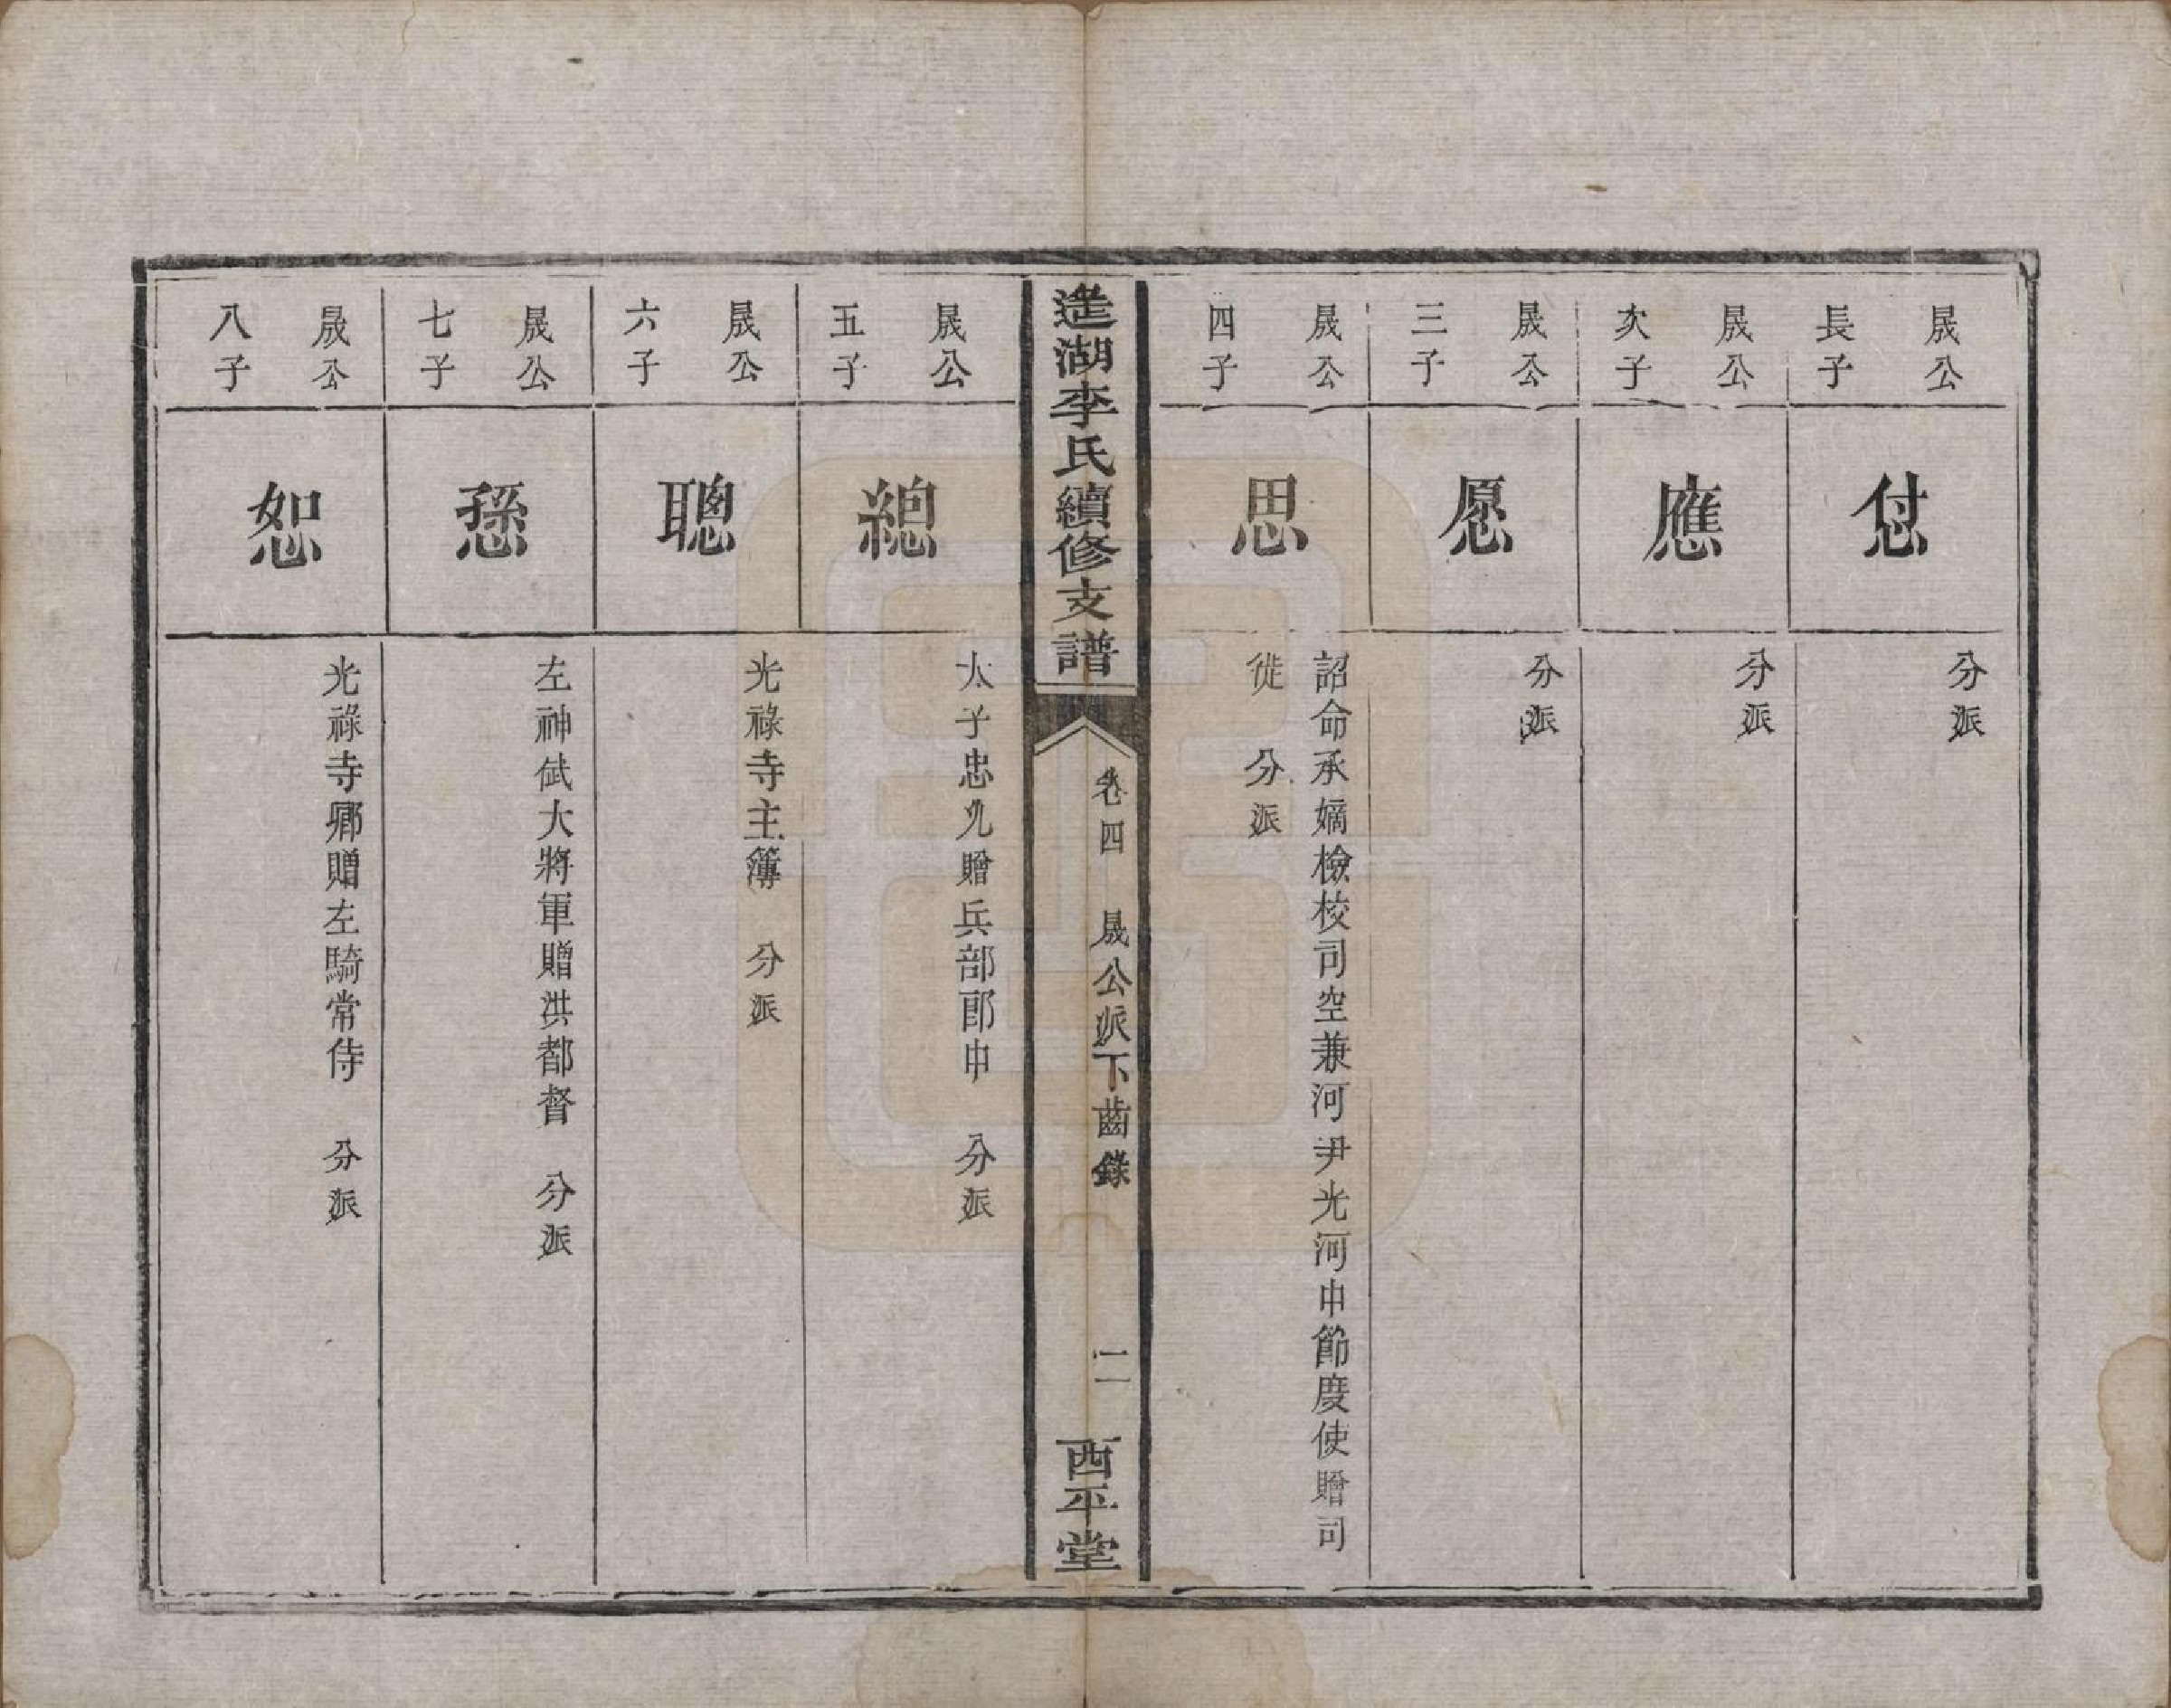 晟公
長子
㤔
分派
晟公
次子
應
分派
晟公
三子
愿
分派
晟公
四子
思
詔命承嫡檢校司空兼河尹光河中節度使贈司
徙　分派
遙湖李氏續修支譜
卷四　晟公派下齒錄
二
西平堂
晟公
五子
總
太子忠允贈兵部郎中　分派
晟公
六子
聰
光祿寺主簿　分派
晟公
七子
愻
左神武大將軍贈洪都督　分派
晟公
八子
恕
光祿寺卿贈左騎常侍　分派